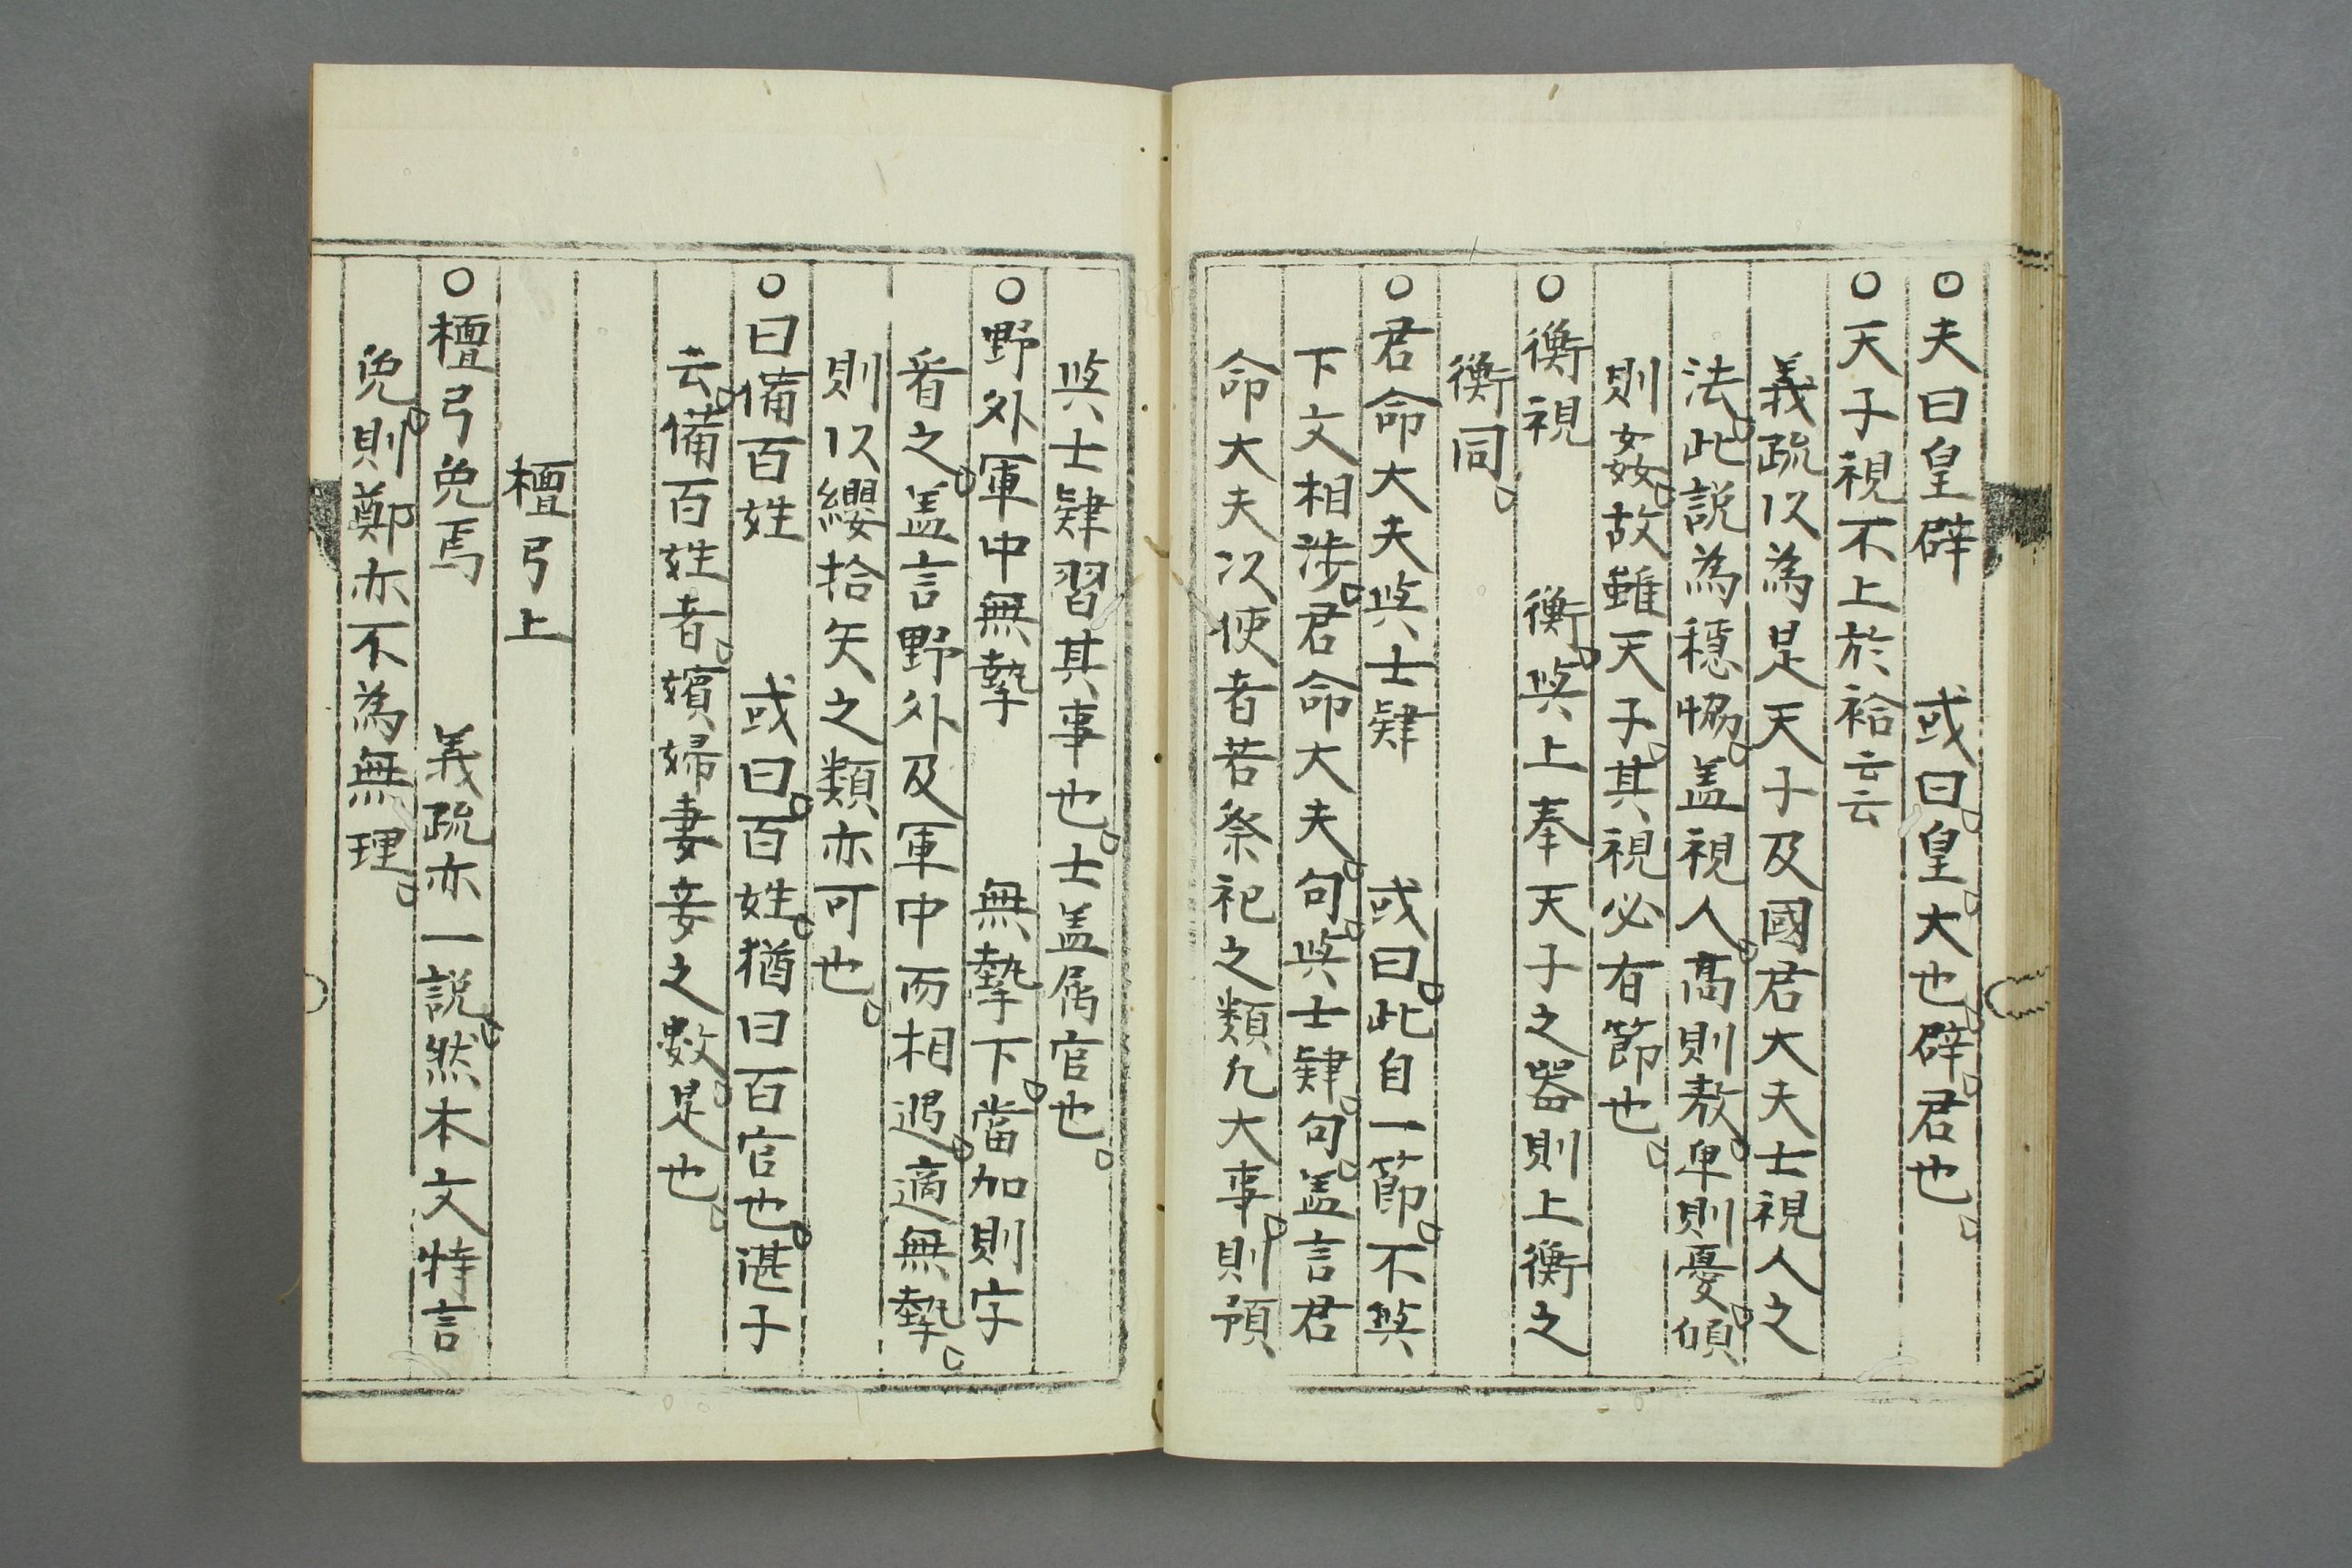 ○夫曰皇辟　或曰皇大也辟君也
○天子視不上於袷云云
義疏以為是天子及國君大夫士視人之
法此説為穩恊盖視人髙則敖卑則憂傾
則姦故雖天子其視必有節也
○衡視　衡與上奉天子之器則上衡之
衡同
○君命大夫與士肄　或曰此自一節不與
下文相涉君命大夫句與士肄句盖言君
命大夫以使者若祭祀之類凢大事則預
與士肄習其事也士盖属官也
○野外軍中無摯　無摯下當加則字
看之盖言野外及軍中而相遇適無摯
則以纓拾矢之類亦可也
○曰備百姓　或曰百姓猶曰百官也湛子
云備百姓者嬪婦妻妾之數是也
檀弓上
○檀弓免焉　義疏亦一説然本文特言
免則鄭亦不為無理